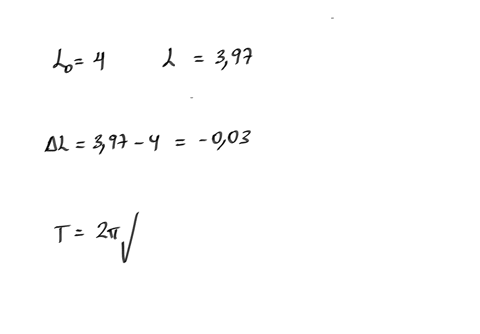 L₀ = 4 L = 3,97
ΔL = 3,97 - 4 = -0,03
T = 2π√